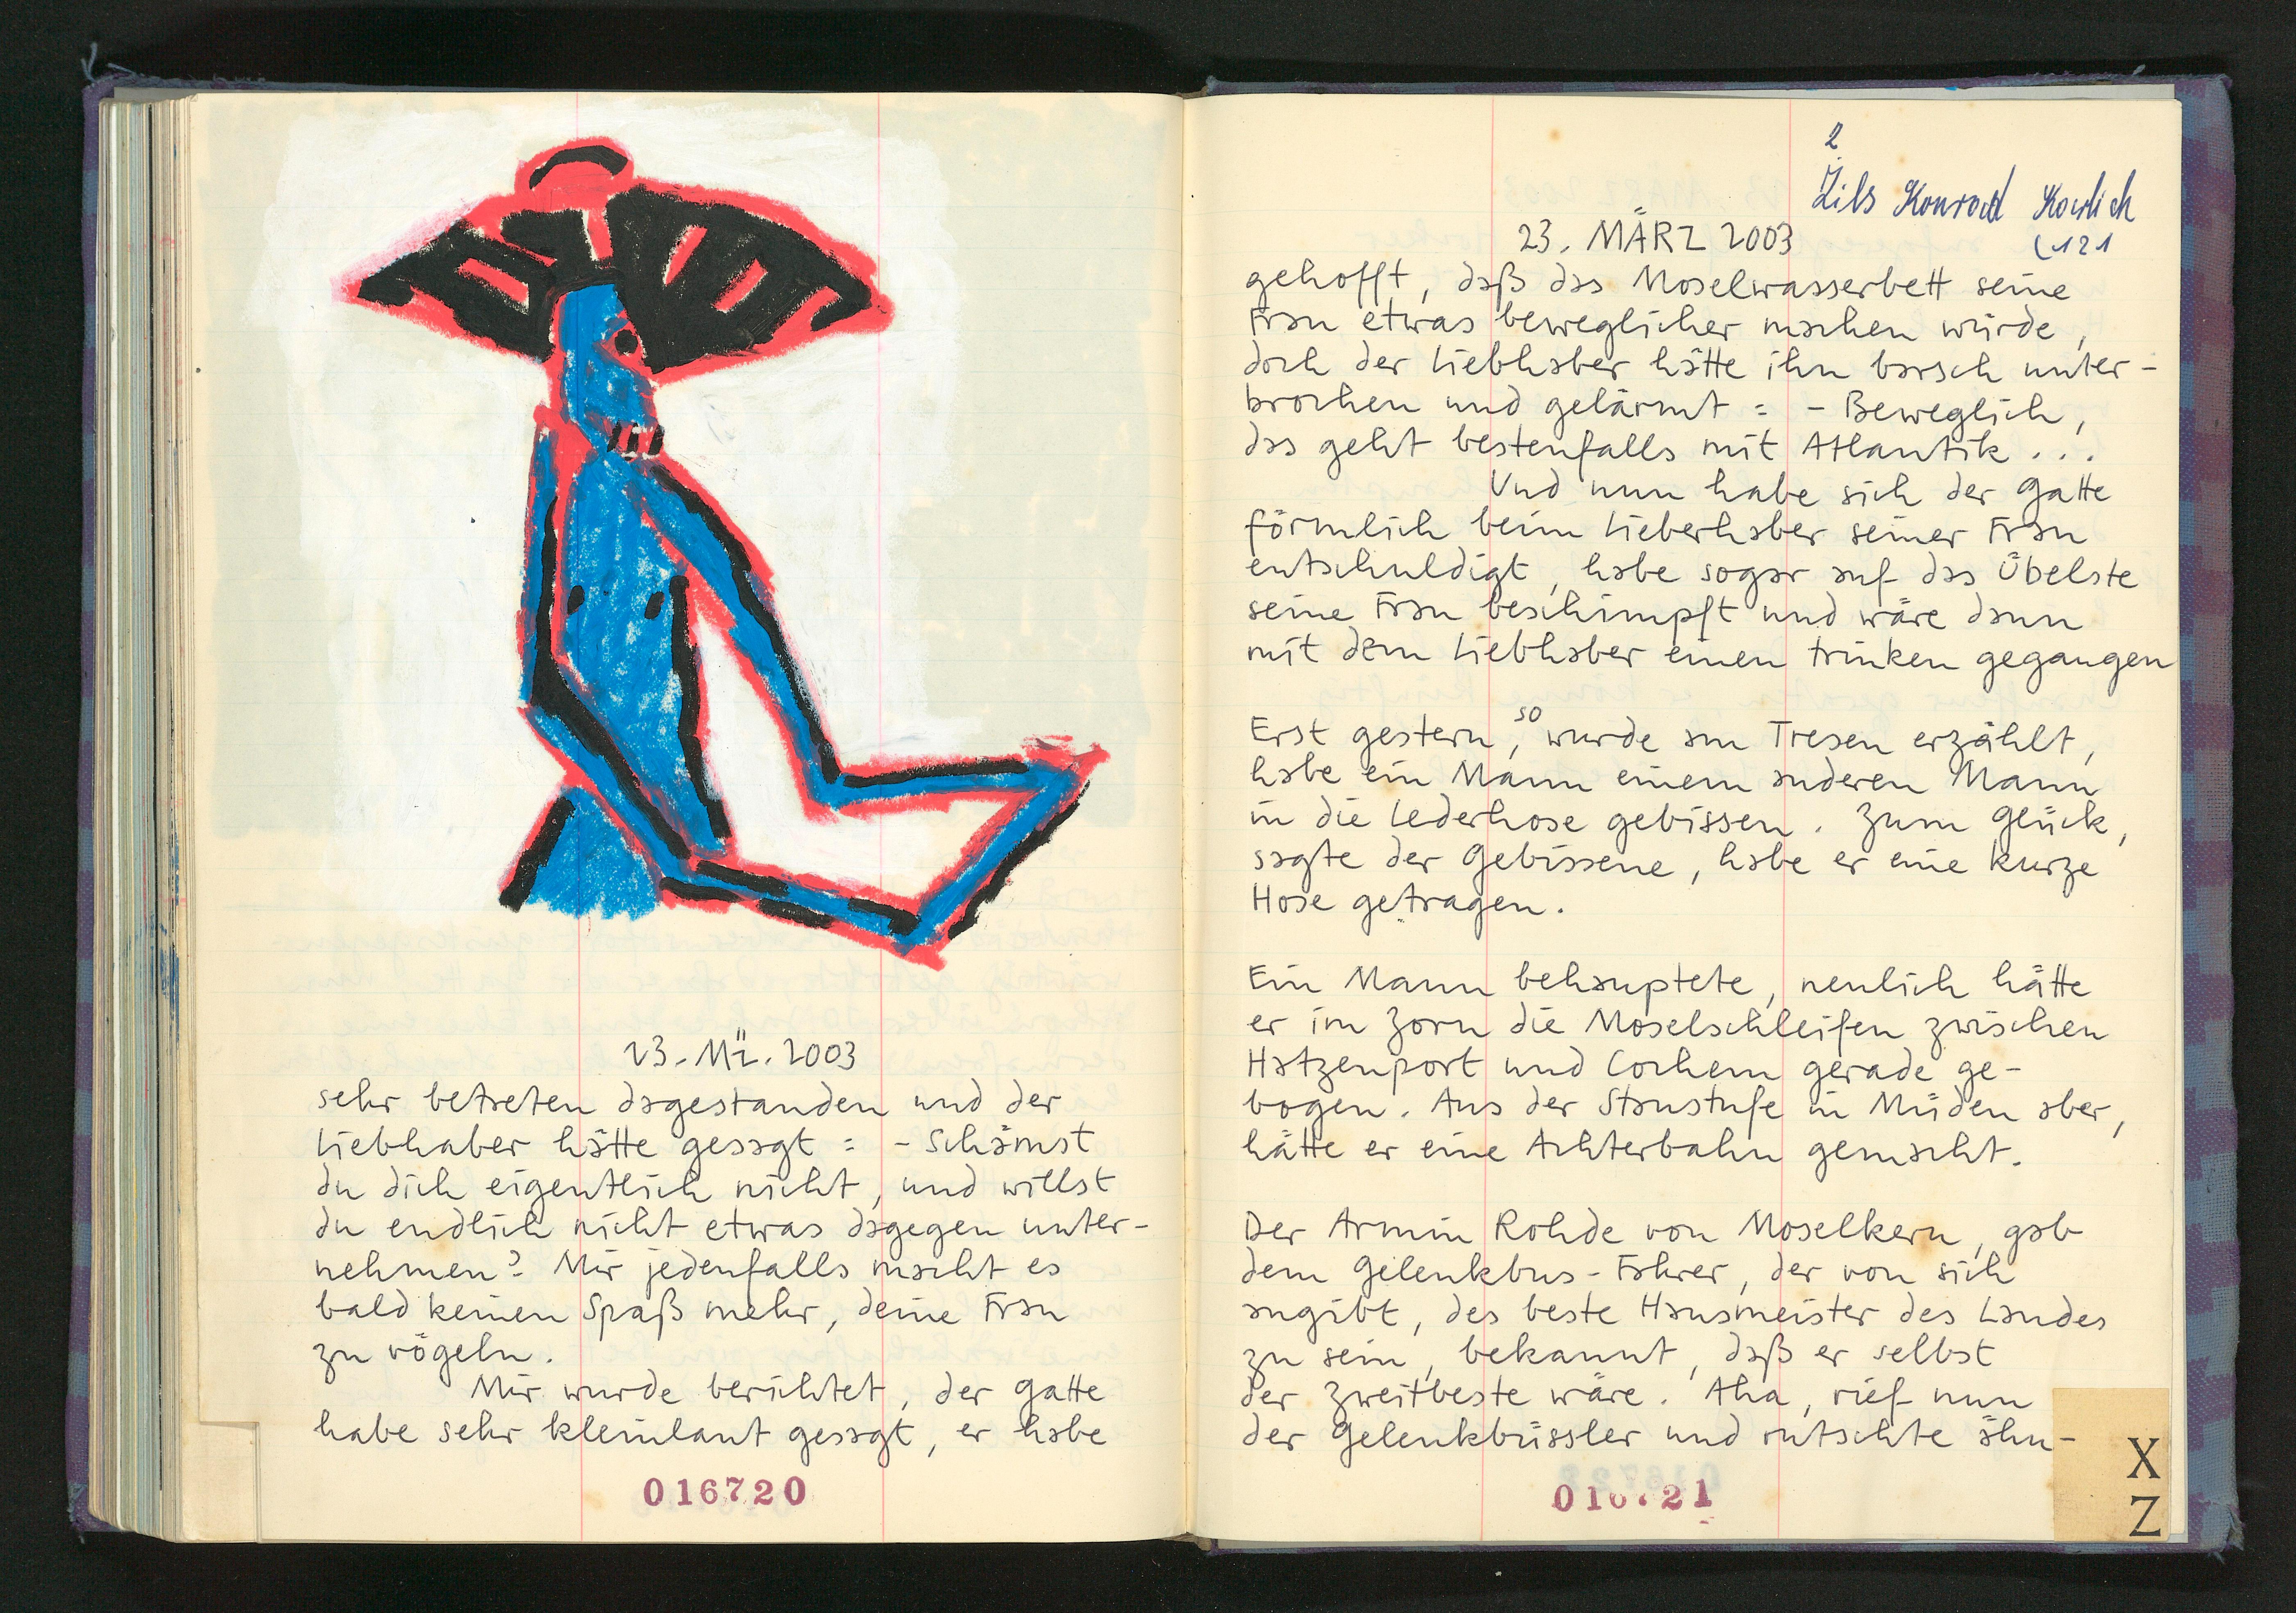 23. MÄ. 2003
sehr betreten dagestanden und der
Liebhaber hätte gesagt: - Schämst
du dich eigentlich nicht, und willst
du endlich nicht etwas dagegen unter-
nehmen? Mir jedenfalls macht es
bald keinen Spaß mehr, deine Frau
zu vögeln.
Mir wurde berichtet, der Gatte
habe sehr kleinlaut gesagt, er habe
016720
2
Zils Konrad
(121
23. MÄRZ 2003
gehofft, daß das Moselwasserbett seine
Frau etwas beweglicher machen würde,
doch der Liebhaber hätte ihn barsch unter-
brochen und gelärmt: - Beweglich,
das geht bestenfalls mit Atlantik...
Und nun habe sich der Gatte
förmlich beim Lieberhaber seiner Frau
entschuldigt, habe sogar auf das Übelste
seine Frau beschimpft und wäre dann
mit dem Liebhaber einen trinken gegangen
Erst gestern, so wurde am Tresen erzählt,
habe ein Mann einem anderen Mann
in die Lederhose gebissen. Zum Glück,
sagte der Gebissene, habe er eine kurze
Hose getragen.
Ein Mann behauptete, neulich hätte
er im Zorn die Moselschleifen zwischen
Hatzenport und Cochem gerade ge-
bogen. Aus der Staustufe in Müden aber,
hätte er eine Achterbahn gemacht.
Der Armin Rohde von Moselkern, gab
dem Gelenkbus-Fahrer, der von sich
angibt, des beste Hausmeister des Landes
zu sein, bekannt, daß er selbst
der zweitbeste wäre. Aha, rief nun
der Gelenkbüssler und rutschte ähn-
016721
X
Z